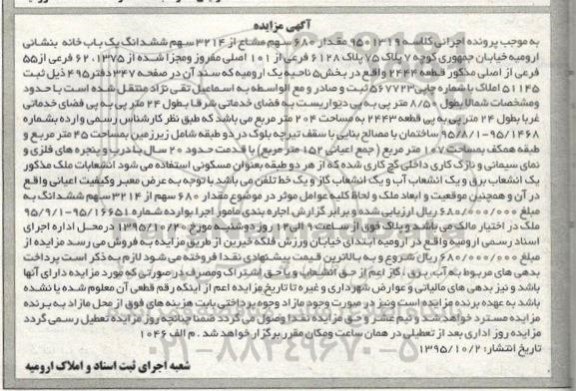 آگهی مزایده
به موجب پرونده اجرائی کلاسه ۹۵۰۱۳۱۹ مقدار ۶۸۰ سهم مشاع از ۳۲۱۴ سهم ششدانگ یک باب خانه بنشانی
ارومیه خیابان جمهوری کوچه ۷ پلاک ۷۵ پلاک ۶۱۲۸ فرعی از ۱۰۱ اصلی مفروز و مجزا شده از ۱۳۷۵، ۶۲ فرعی از ۵۵
فرعی از اصلی مذکور قطعه ۲۴۴۴ واقع در بخش ۵ ناحیه یک ارومیه که سند آن در صفحه ۳۴۷ دفتر ۴۹۵ ذیل ثبت
۵۱۱۴۵ املاک با شماره چاپی ۵۶۷۷۲۳ ثبت و صادر و مع الواسطه به اسماعیل تقی نژاد منتقل شده است با حدود
ومشخصات شمالا بطول ۸/۵۰ متر پی به پی دیواریست به فضای خدماتی شرقا بطول ۲۴ متر پی به پی فضای خدماتی
غربا بطول ۲۴ متر پی به پی قطعه ۲۴۴۳ به مساحت ۲۰۴ متر مربع می باشد که طبق نظر کارشناس رسمی وارده بشماره
۹۵/۱۴۶۸-۹۵/۸/۱ ساختمان با مصالح بنایی با سقف تیرچه بلوک در دو طبقه شامل زیرزمین بمساحت ۴۵ متر مربع و
طبقه همکف بمساحت ۱۰۷ متر مربع (جمع اعیانی ۱۵۲ متر مربع) با قدمت حدود ۲۰ سال با درب و پنجره های فلزی و
نمای سیمانی و نازک کاری داخلی گچ کاری شده که از هر دو طبقه بعنوان مسکونی استفاده می شود انشعابات ملک مذکور
یک انشعاب برق و یک انشعاب آب و یک انشعاب گاز و یک خط تلفن می باشد با توجه به عرض معبر وکیفیت اعیانی واقع
در آن و همچنین موقعیت و ابعاد ملک و لحاظ کلیه عوامل موثر در موضوع مقدار ۶۸۰ سهم از ۳۲۱۴ سهم ششدانگ به
مبلغ ۶۸۰/۰۰۰/۰۰۰ ریال ارزیابی شده و برابر گزارش اجاره بندی مامور اجرا بوارده شماره ۹۵/۱۶۶۵۱-۹۵/۹/۱
ملک در اختیار مالک می باشد و پلاک فوق از ساعت ۹ الی ۱۲ روز دوشنبه مورخ ۱۳۹۵/۱۰/۲۰ در محل اداره اجرای
اسناد رسمی ارومیه واقع در ارومیه ابتدای خیابان ورزش فلکه خیرین از طریق مزایده به فروش می رسد مزایده از
مبلغ ۶۸۰/۰۰۰/۰۰۰ ریال شروع و به بالاترین قیمت پیشنهادی نقدا فروخته می شود لازم به ذکر است پرداخت
بدهی های مربوط به آب، برق، گاز اعم از حق انشعاب و یا حق اشتراک ومصرف در صورتی که مورد مزایده دارای آنها
باشد و نیز بدهی های مالیاتی و عوارض شهرداری و غیره تا تاریخ مزایده اعم از اینکه رقم قطعی آن معلوم شده یا نشده
باشد به عهده برنده مزایده است ونیز در صورت وجود مازاد وجوه پرداختی بابت هزینه های فوق از محل مازاد به برنده
مزایده مسترد خواهد شد و نیم عشر و حق مزایده نقدا وصول می گردد ضمنا چنانچه روز مزایده تعطیل رسمی گردد
مزایده روز اداری بعد از تعطیلی در همان ساعت ومکان مقرر برگزار خواهد شد. م الف ۱۰۴۶
تاریخ انتشار: ۱۳۹۵/۱۰/۲
شعبه اجرای ثبت اسناد و املاک ارومیه
۰۲۱-۸۸۳۴۹۶۷۰-۵